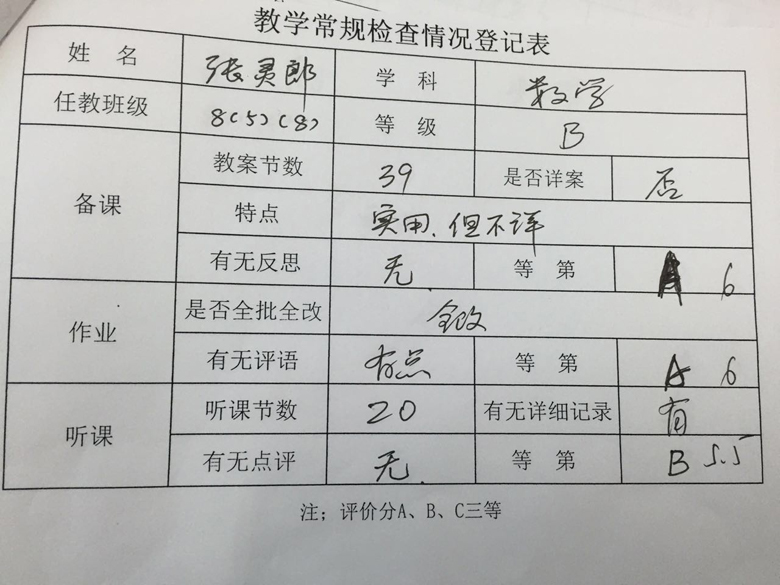 教学常规检查情况登记表
姓 名 张灵郎 学 科 数学
任教班级 8(5)(8) 等 级 B
备课 教案节数 39 是否详案 否
特点 实用、但不详
有无反思 无 等 第 A 6
作业 是否全批全改 全改
有无评语 有点 等 第 A 6
听课 听课节数 20 有无详细记录 有
有无点评 无. 等 第 B 5.5
注；评价分A、B、C三等